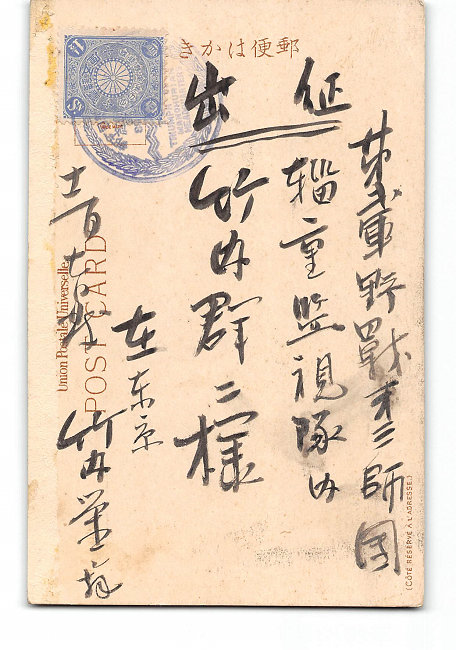 郵便はかき
出征
軍野戰第三師團
輜重監視隊内
竹内群二様
在東京
竹内
Union Postale Universelle
POST CARD
(CÔTÉ RÉSERVÉ À L'ADRESSE.)